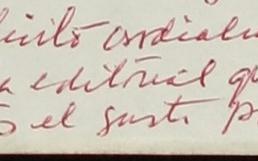 cordialm
a editorial qu
s el gusto p